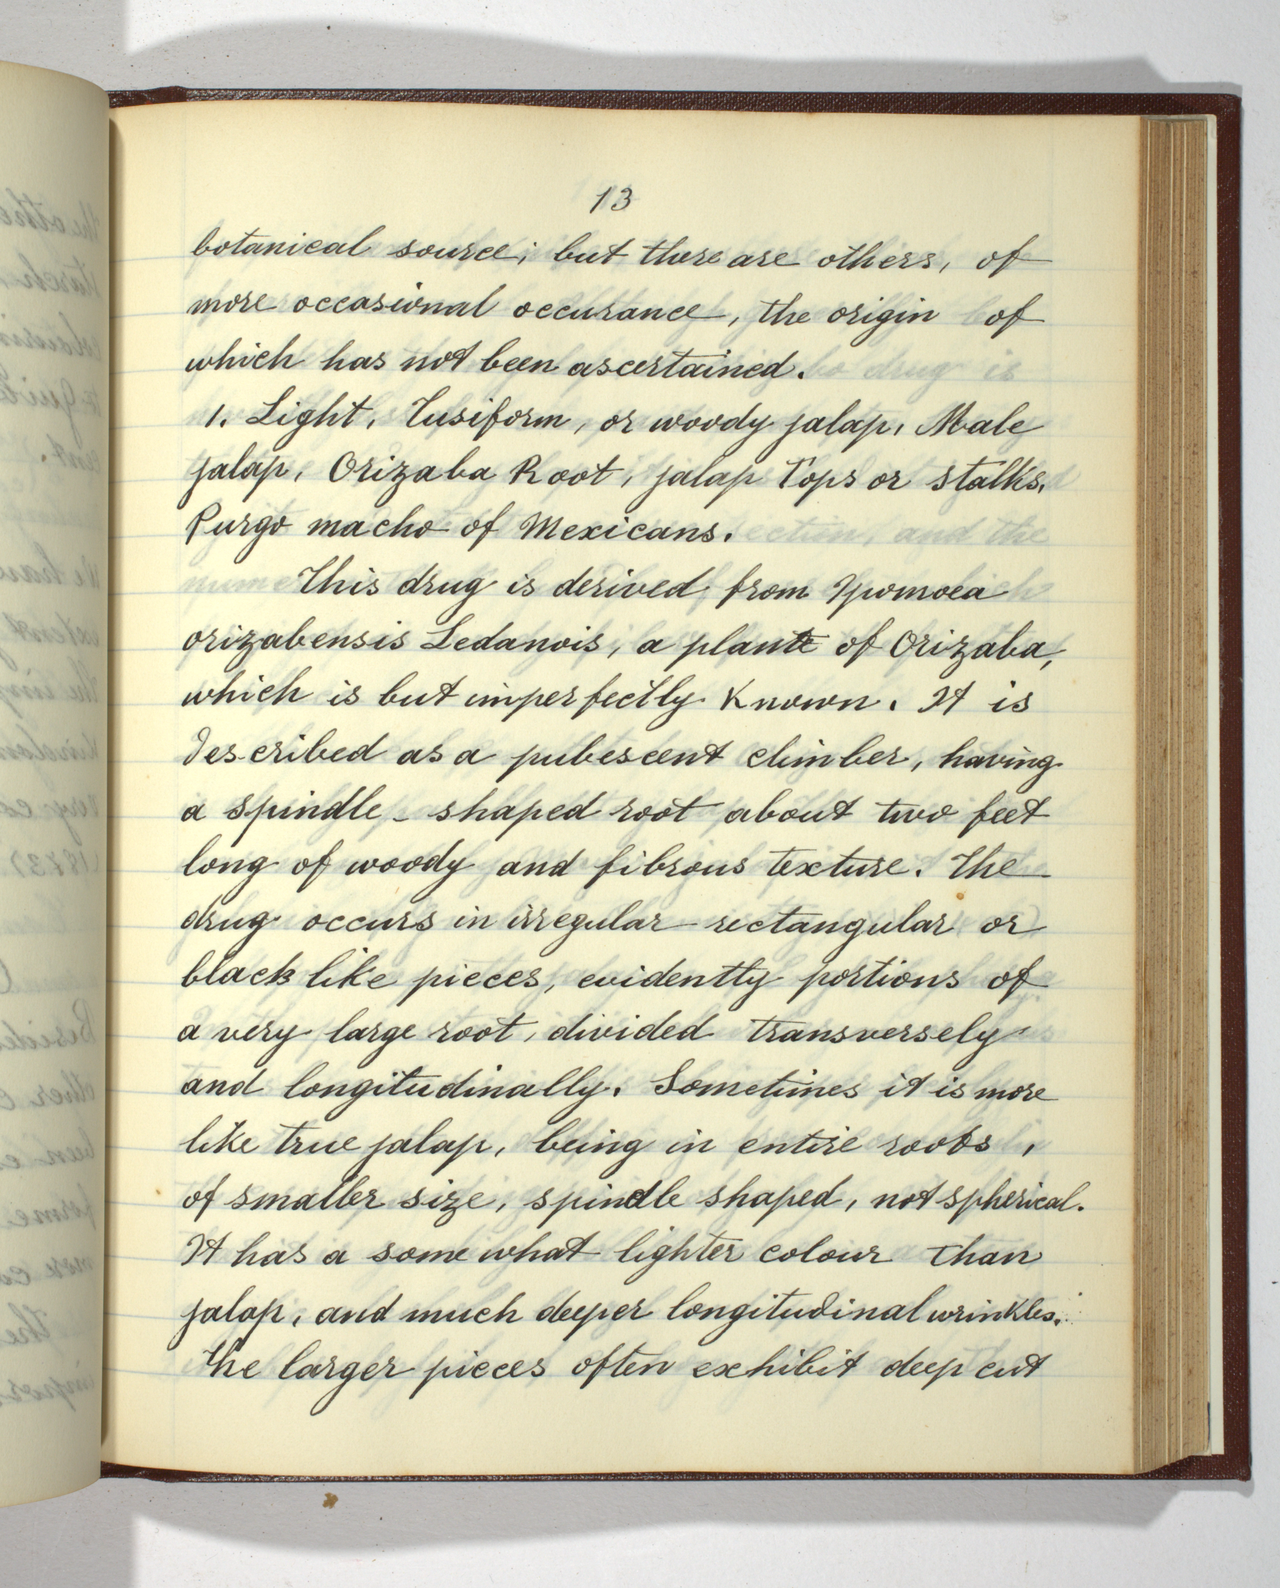 13
botanical source; but there are others, of
more occasional occurance, the origin of
which has not been ascertained.
1. Light, Fusiform, or woody jalap, Male
jalap, Orizaba Root, jalap Tops or stalks.
Purgo macho of Mexicans.
This drug is derived from Ipomoea
orizabensis Ledanois, a plant of Orizaba,
which is but imperfectly known. It is
described as a pubescent climber, having
a spindle-shaped root about two feet
long of woody and fibrous texture. The
drug occurs in irregular rectangular or
black like pieces, evidently portions of
a very large root, divided transversely
and longitudinally. Sometimes it is more
like true jalap, being in entire roots,
of smaller size, spindle shaped, not spherical.
It has a somewhat lighter colour than
jalap, and much deeper longitudinal wrinkles.
The larger pieces often exhibit deep cut